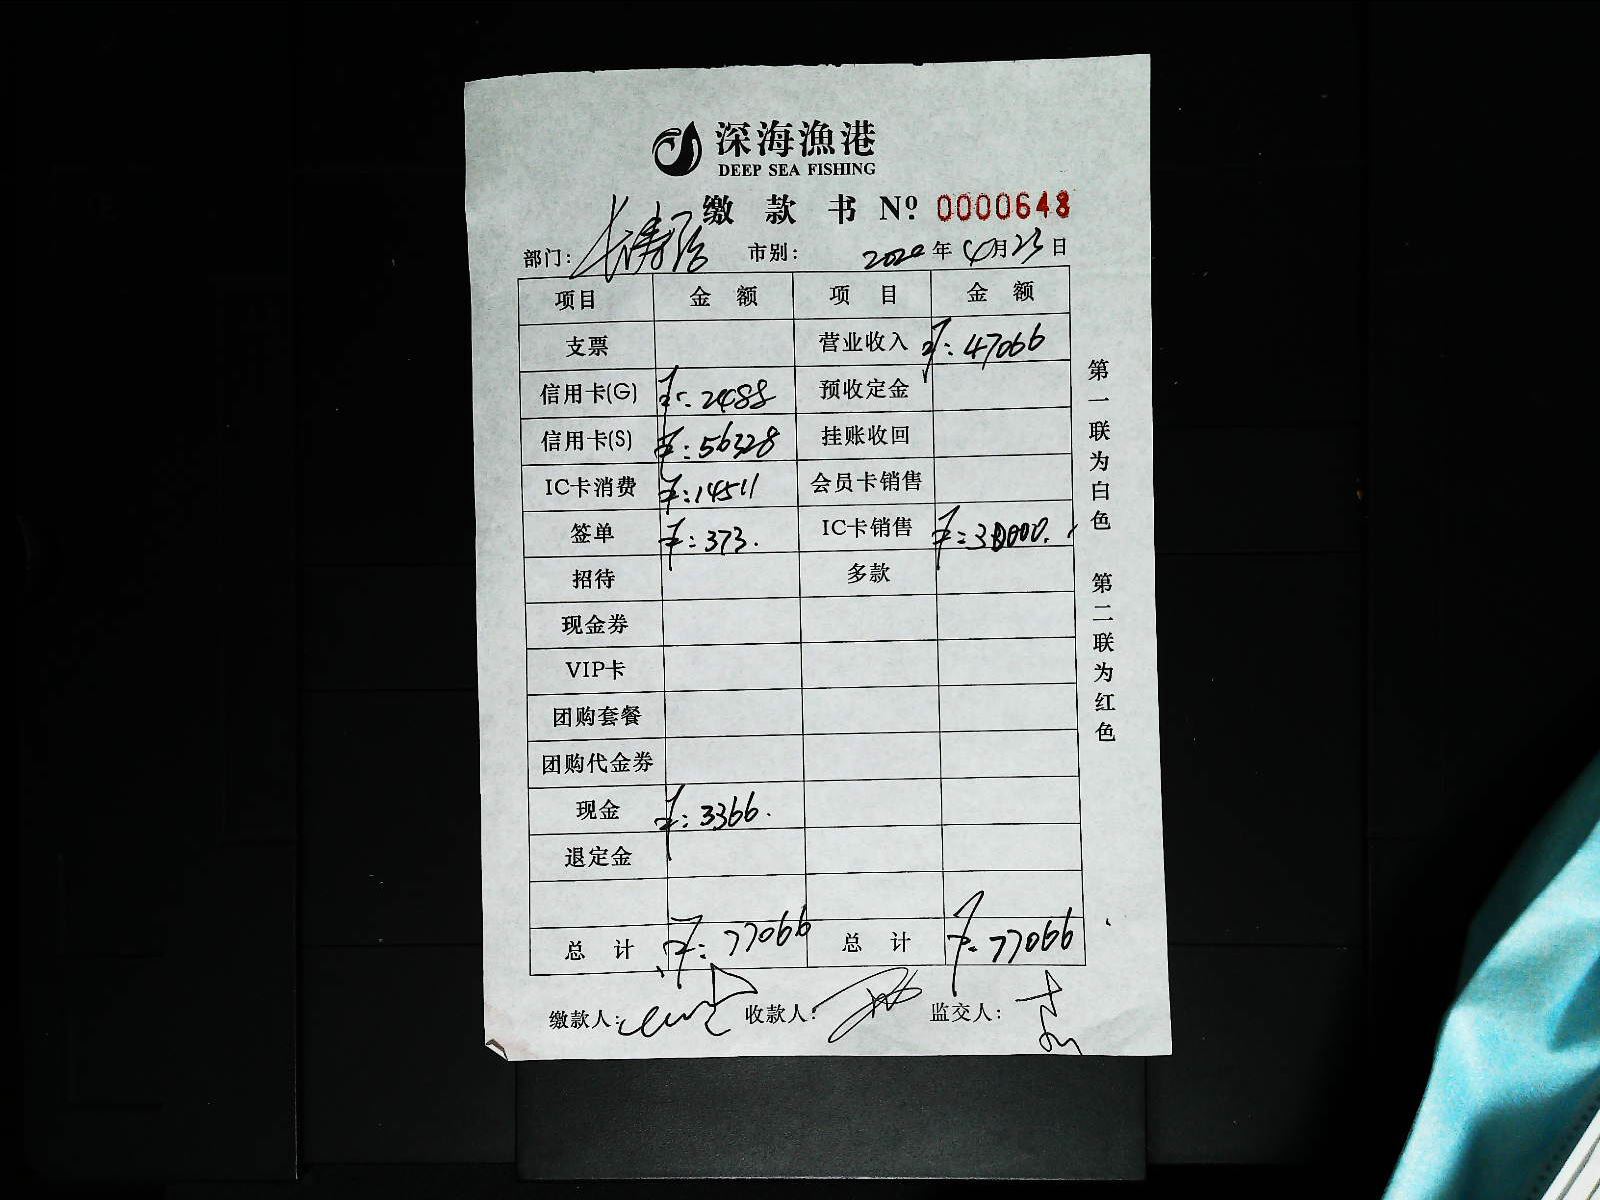 深海漁港
DEEP SEA FISHING
缴款书 Nº 0000648
部门: 市别: 2020年4月23日
项目 金额 项目 金额
支票 营业收入 ¥:47066
信用卡(G) ¥:2488 预收定金
信用卡(S) ¥:56328 挂账收回
IC卡消费 ¥:14511 会员卡销售
签单 ¥:373. IC卡销售 ¥:30000.
招待 多款
现金券
VIP卡
团购套餐
团购代金券
现金 ¥:3366.
退定金
总计 ¥:77066 总计 ¥:77066
缴款人: 收款人: 监交人:
第一联为白色 第二联为红色